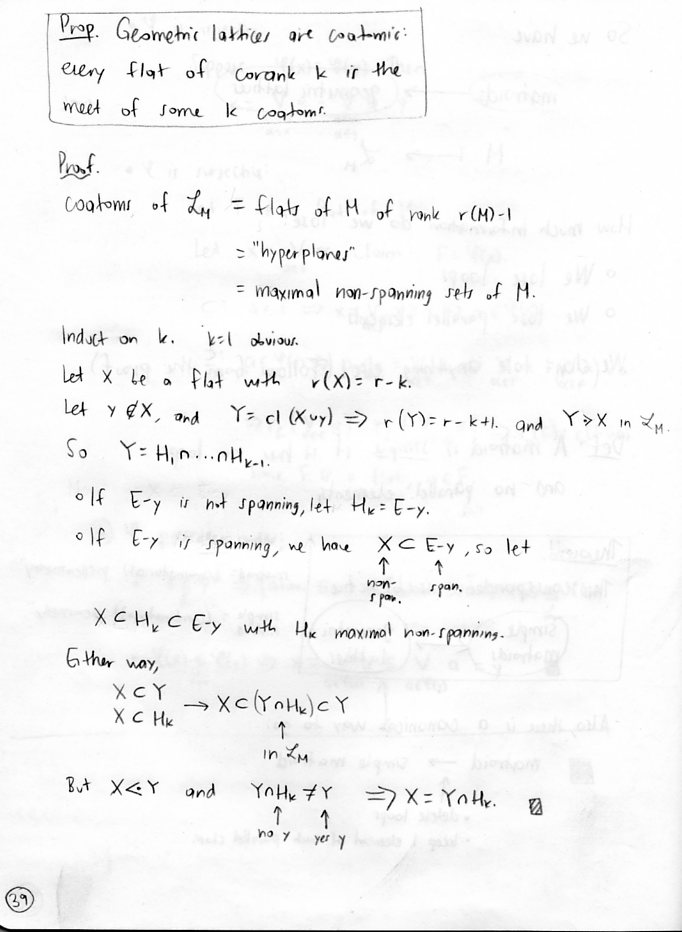 Prop. Geometric lattices are coatomic:
every flat of corank k is the
meet of some k coatoms.
Proof.
Coatoms of ℒ_M = flats of M of rank r(M)-1
= "hyperplanes"
= maximal non-spanning sets of M.
Induct on k. k=1 obvious.
Let X be a flat with r(X) = r-k.
Let y ∉ X, and Y = cl(X∪y) ⇒ r(Y) = r-k+1. and Y ⋗ X in ℒ_M.
So Y = H₁∩...∩H_{k-1}.
∘ If E-y is not spanning, let H_k = E-y.
∘ If E-y is spanning, we have X ⊂ E-y, so let
↑ ↑
non-span. span.
X ⊂ H_k ⊂ E-y with H_k maximal non-spanning.
Either way,
X ⊂ Y
X ⊂ H_k → X ⊂ (Y∩H_k) ⊂ Y
↑
in ℒ_M
But X ⋖ Y and Y∩H_k ≠ Y ⇒ X = Y∩H_k.
↑ ↑
no y yes y
39